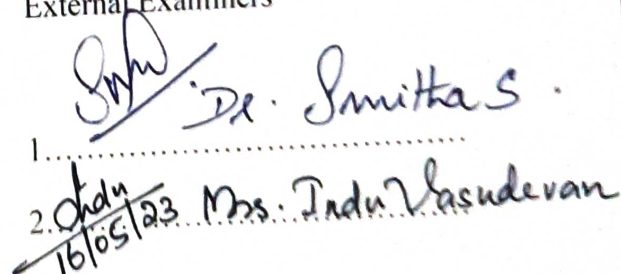 External Examiners
Dr. Smitha S.
1..............................................
2. Indu 16/05/23 Mrs. Indu Vasudevan